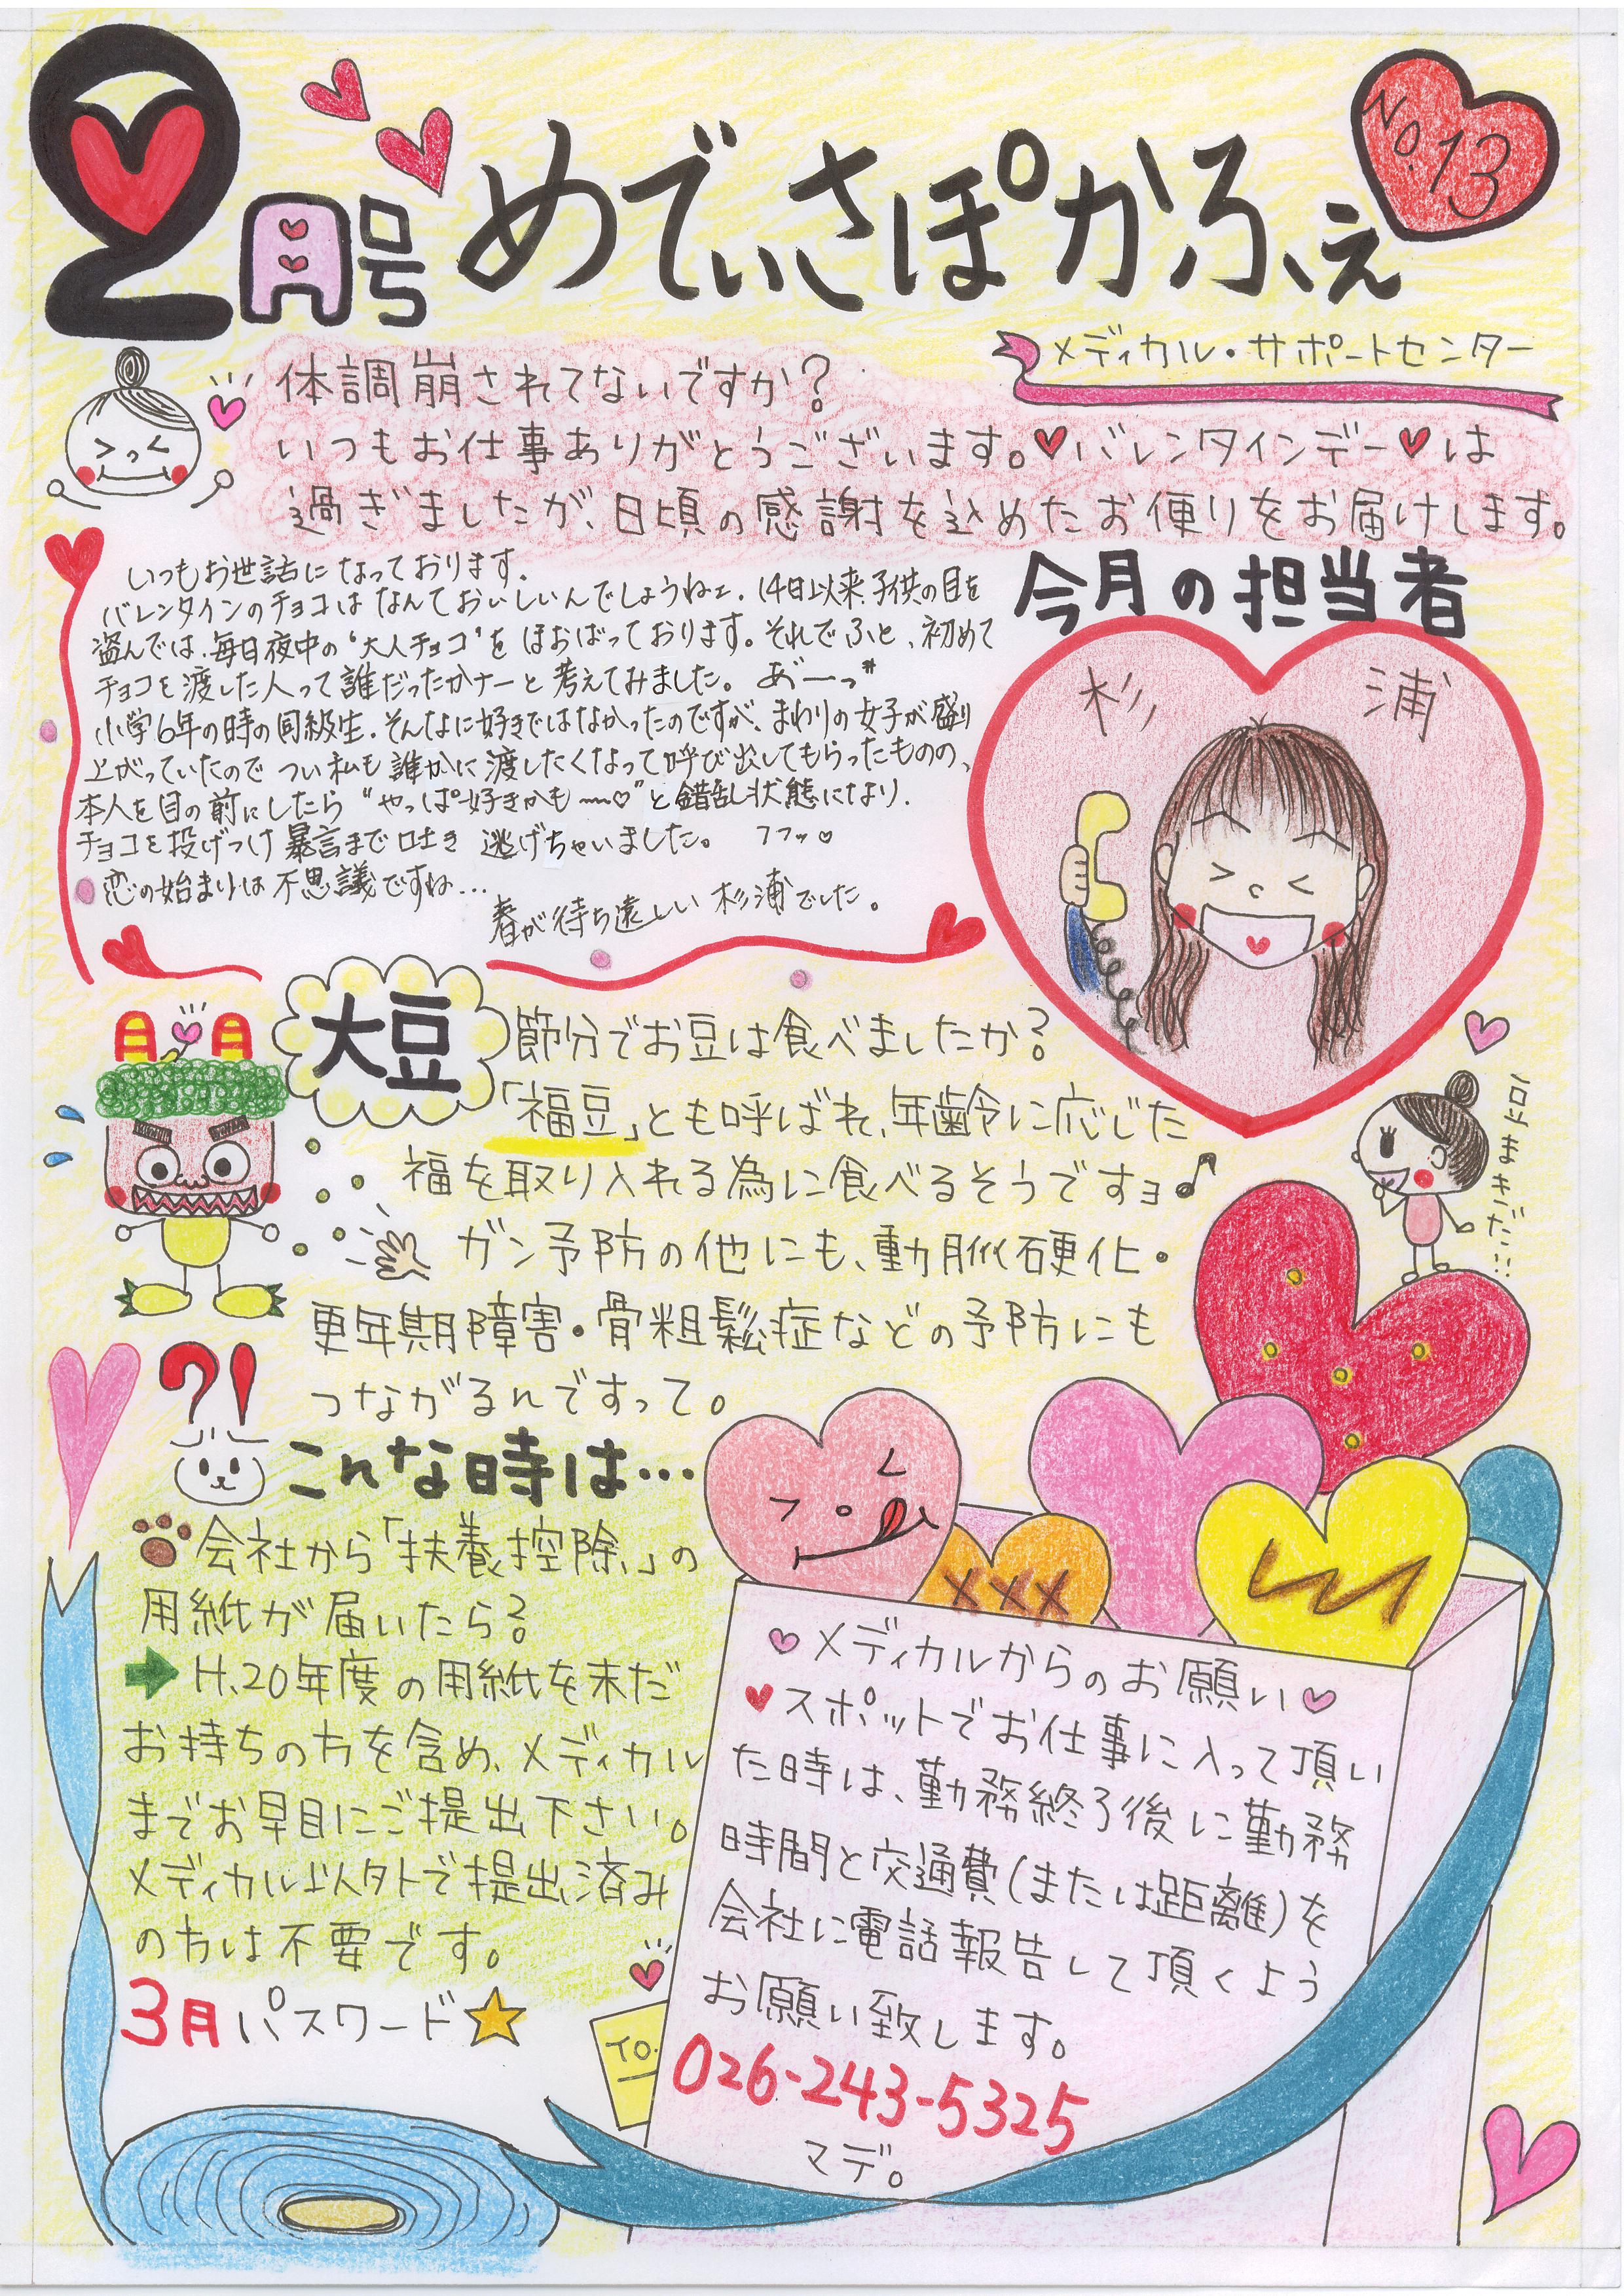 2月号 めでぃさぽかふぇ
No.13
メディカル・サポートセンター
体調崩されてないですか?
いつもお仕事ありがとうございます。♥バレンタインデー♥は
過ぎましたが、日頃の感謝を込めたお便りをお届けします。
いつもお世話になっております。
バレンタインのチョコはなんておいしいんでしょうねェ. 14日以来、子供の目を
盗んでは、毎日夜中の'大人チョコ'をほおばっております。それでふと、初めて
チョコを渡した人って誰だったかナーと考えてみました。 あ゛ーっ
小学6年の時の同級生.そんなに好きではなかったのですが、まわりの女子が盛り
上がっていたのでつい私も誰かに渡したくなって呼び出してもらったものの、
本人を目の前にしたら“やっぱ好きかも〜♡”と錯乱状態になり.
チョコを投げつけ暴言まで吐き 逃げちゃいました。 フフッ♡
恋の始まりは不思議ですね…
春が待ち遠しい 杉浦でした。
今月の担当者
杉浦
大豆
節分でお豆は食べましたか?
「福豆」とも呼ばれ、年齢に応じた
福を取り入れる為に食べるそうですョ♪
ガン予防の他にも、動脈硬化・
更年期障害・骨粗鬆症などの予防にも
つながるんですって。
豆まきだ!!
?!
こんな時は…
会社から「扶養控除」の
用紙が届いたら?
➡H.20年度の用紙を未だ
お持ちの方を含め、メディカル
までお早目にご提出下さい。
メディカル以外で提出済み
の方は不要です。
3月パスワード☆
XXX
♡メディカルからのお願い♡
♥スポットでお仕事に入って頂い
た時は、勤務終了後に勤務
時間と交通費(または距離)を
会社に電話報告して頂くよう
お願い致します。
026-243-5325
マデ。